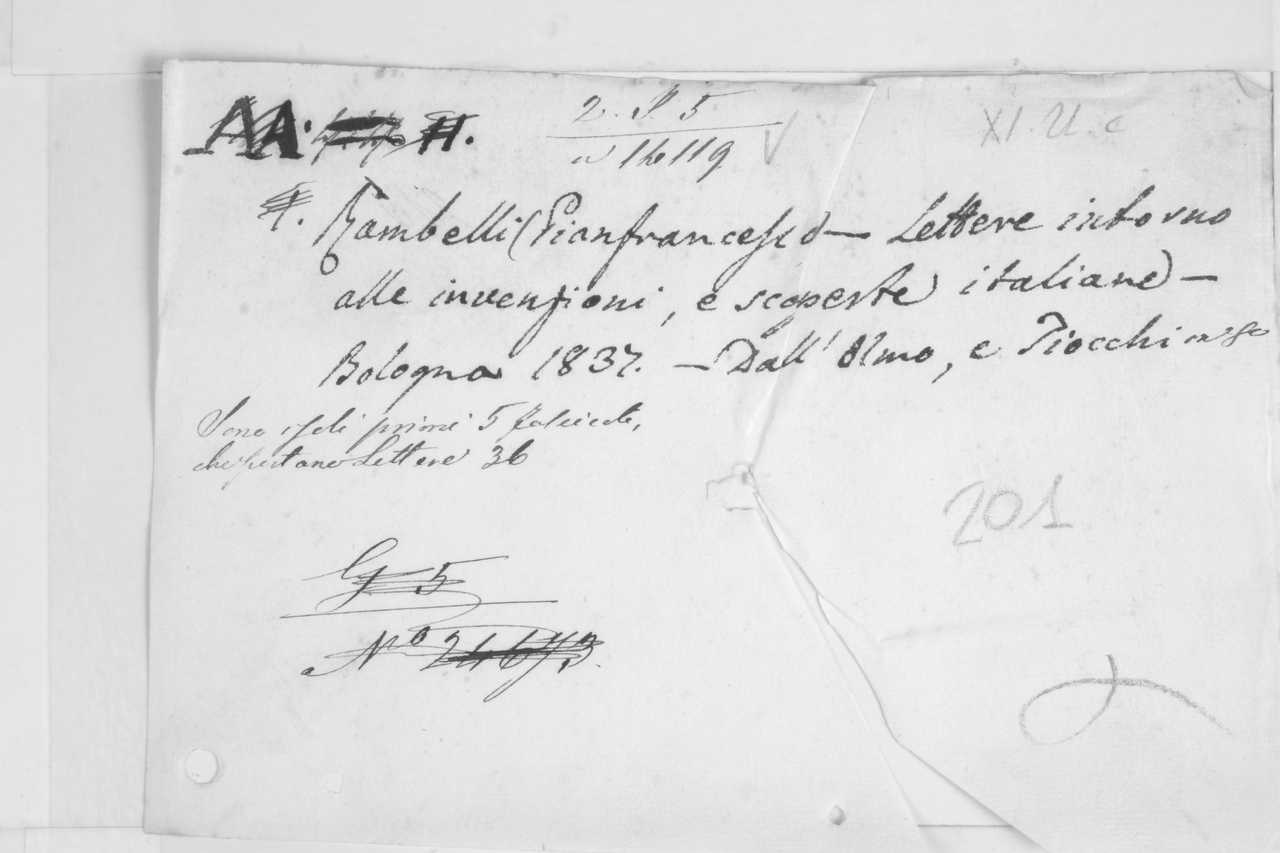 AA. H.
2. S. 5
XI. U. c
Rambelli (Gianfrancesco — Lettere intorno
alle invenzioni, e scoperte italiane) —
Bologna 1837. — Dall' Olmo, e Tiocchi
Sono i soli primi 5 fascicoli,
che portano Lettere 36
201
G 5
Nº